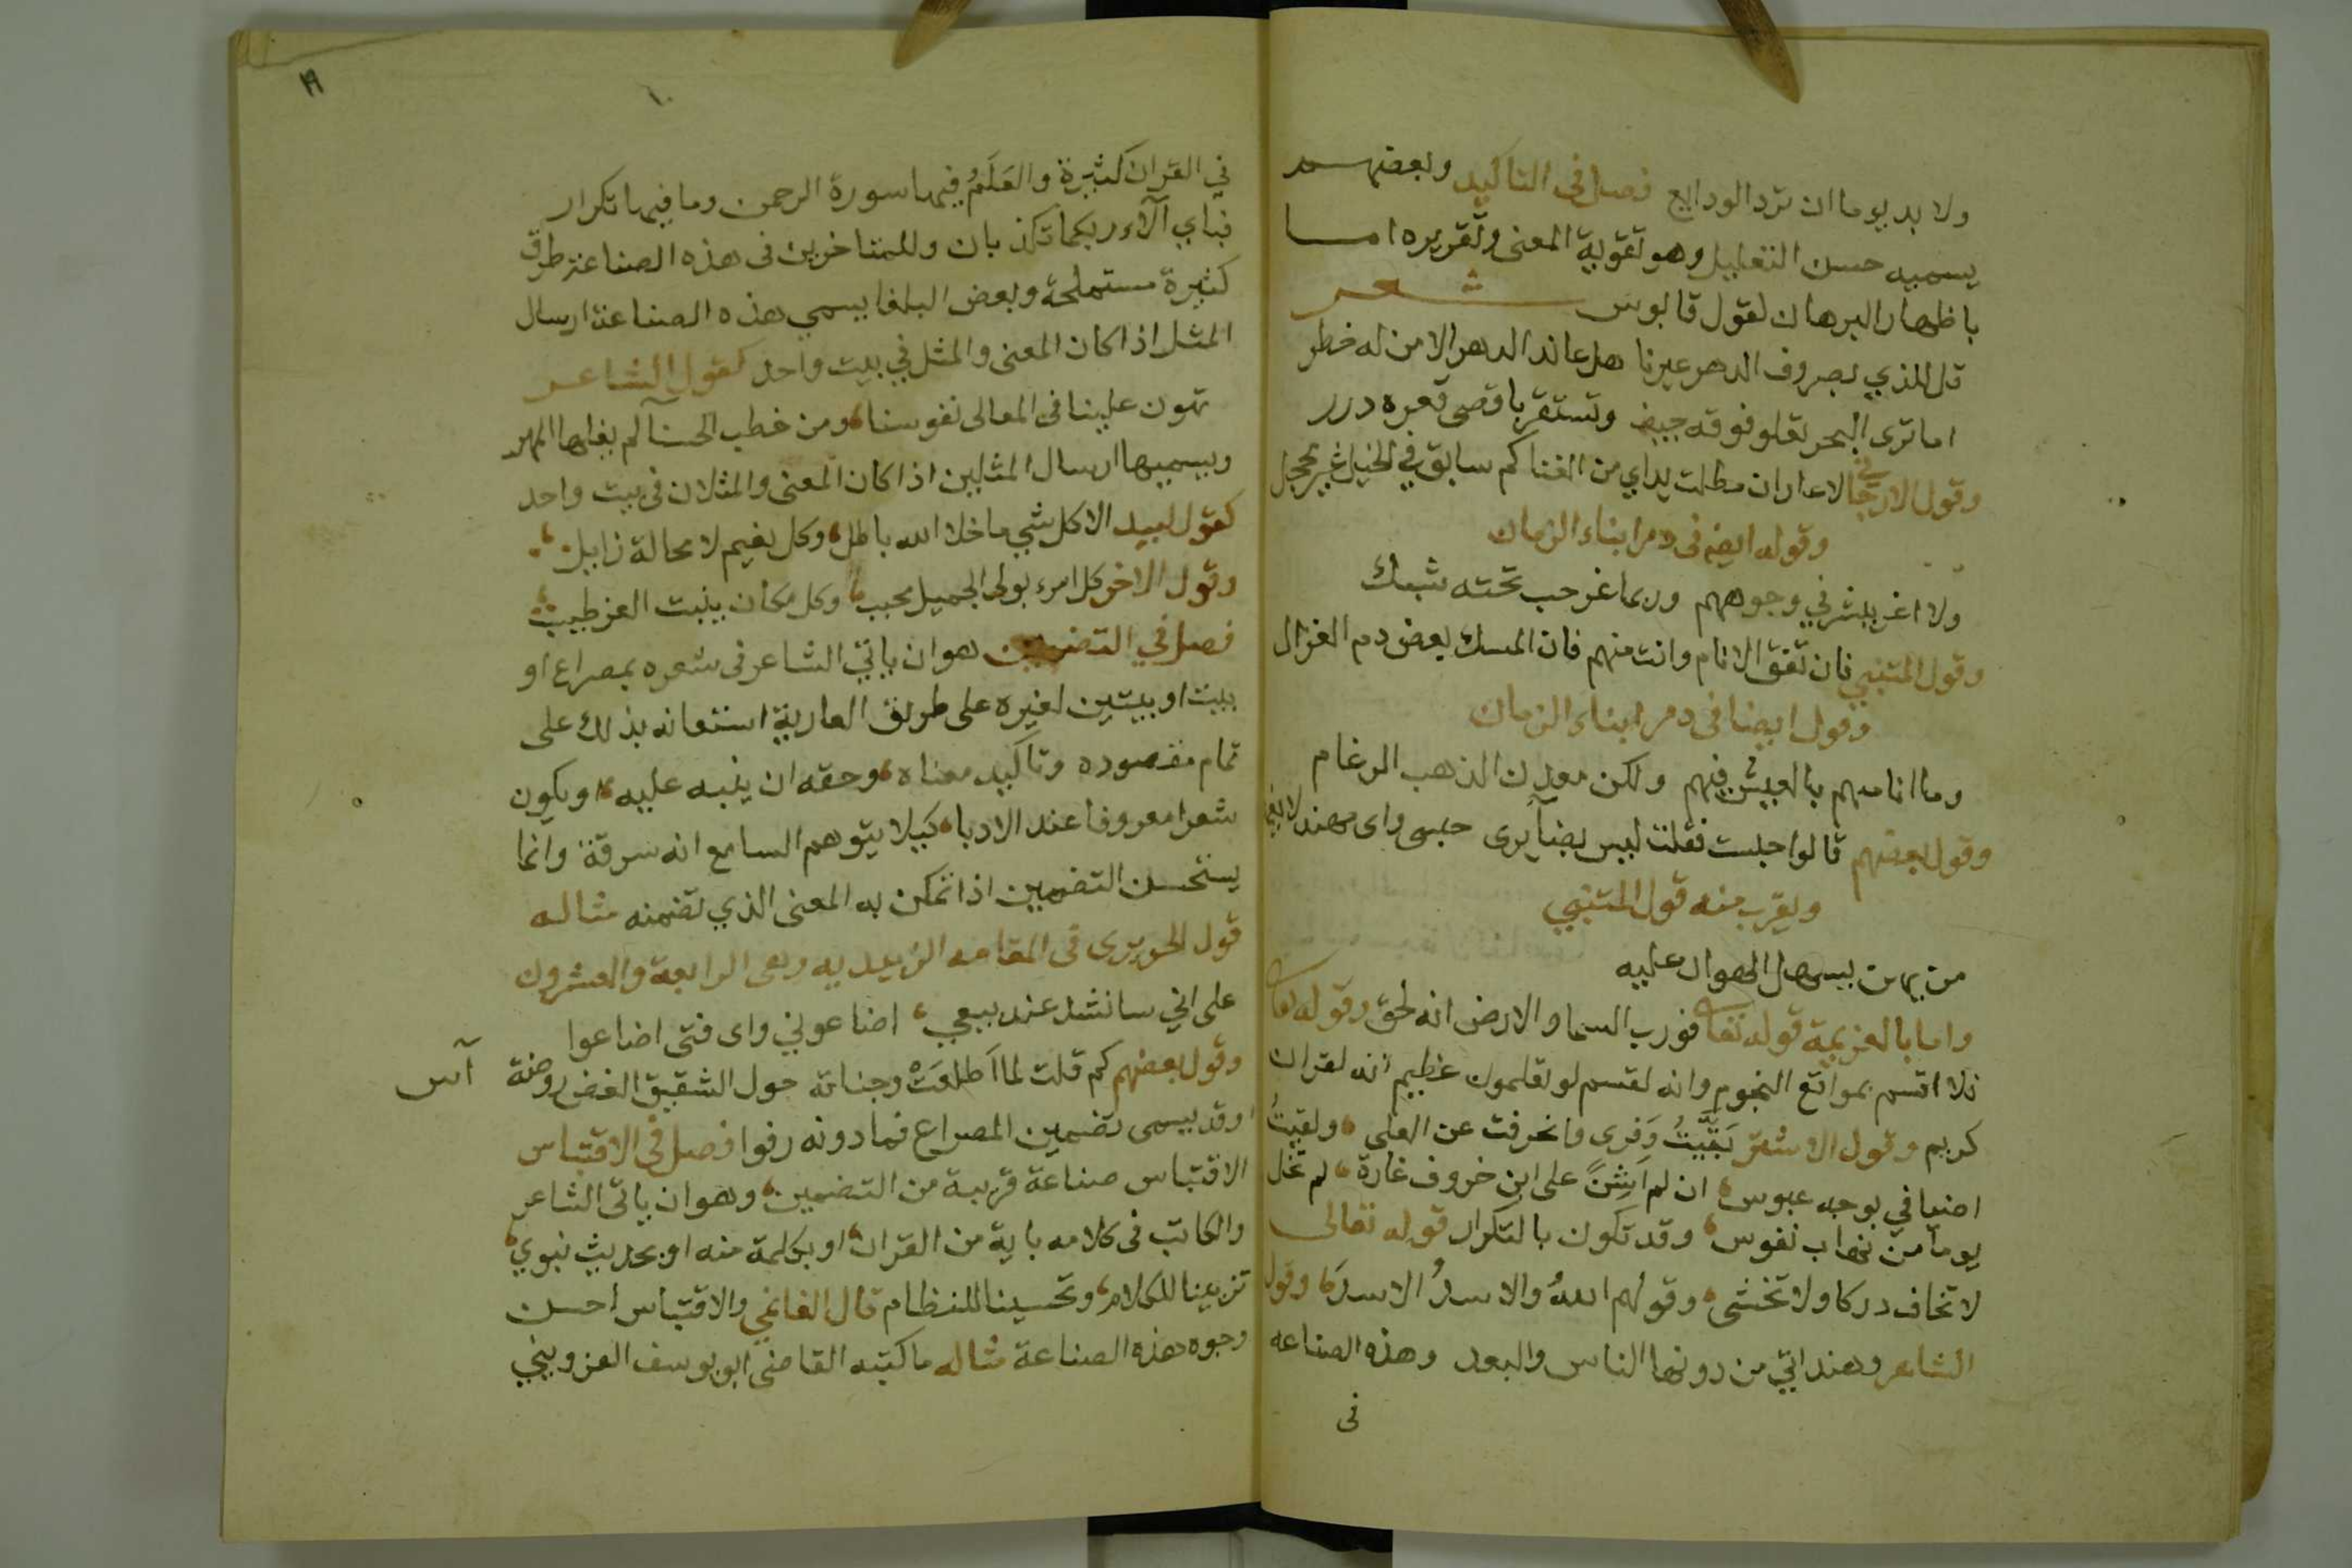 ولا بد يوما ان ترد الودايع فصل فى التاكيد وبعضهم
يسميه حسن التعليل وهو تقوية المعنى وتقريره اما
باظهار البرهان لقول قابوس شعر
قل للذي بصروف الدهر عيرنا هل عاند الدهر الا من له خطر
اما ترى البحر تعلو فوقه جيف وتستقر باقصى قعره درر
وقول الارجاني لاعار ان عطلت يداي من الغنا كم سابق في الخيل غير محجل
وقوله ايضا فى ذم ابناء الزمان
ولا اغر ببشر في وجوههم وربما غر حب تحته شبك
وقول المتنبي فان تفق الانام وانت منهم فان المسك بعض دم الغزال
وقول ايضا فى ذم ابناء الزمان
وما انا منهم بالعيش فيهم ولكن معدن الذهب الرغام
وقول بعضهم قالوا حبست فقلت ليس بضائرى حبسى واى مهند لا يغمد
ويقرب منه قول المتنبي
من يهن يسهل الهوان عليه
واما بالعزيمة قوله تعا فورب السما والارض انه لحق وقوله تعا
فلا اقسم بمواقع النجوم وانه لقسم لو تعلمون عظيم انه لقران
كريم وقول الاشتر بَقَّيتُ وَفرى وانحرفت عن العلى ولقيتُ
اضيافي بوجه عبوس ان لم اشنَّ على ابن خروف غارة لم تخل
يوما من نهاب نفوس وقد تكون بالتكرار قوله تعالى
لا تخاف دركا ولا تخشى وقولهم اللهُ والاسدُ الاسدَ وقول
الشاعر وهند اتى من دونها الناس والبعد وهذه الصناعه
فى
١٩
في القران كثيرة والعَلَمُ فيها سورة الرحمن وما فيها تكرار
فباي آلاء ربكما تكذبان وللمتاخرين فى هذه الصناعة طرق
كثيرة مستملحة وبعض البلغا يسمي هذه الصناعة ارسال
المثل اذا كان المعنى والمثل في بيت واحد كقول الشاعر
تهون علينا فى المعالى نفوسنا ومن خطب الحسنا لم يغلها المهر
ويسميها ارسال المثلين اذا كان المعنى والمثلان فى بيت واحد
كقول لبيد الا كل شي ما خلا الله باطل وكل نعيم لا محالة زايل
وقول الاخر كل امرء يولى الجميل محبب وكل مكان ينبت العز طيب
فصل في التضمين هو ان ياتي الشاعر فى شعره بمصراع او
بيت او بيتين لغيره على طريق العارية استعانه بذلك على
تمام مقصوده وتاكيد معناه وحقه ان ينبه عليه او يكون
شعرا معروفا عند الادبا كيلا يتوهم السامع انه سرقة وانما
يستحسن التضمين اذا تمكن به المعنى الذي تضمنه مثاله
قول الحريرى فى المقامه الزبيديه وهى الرابعة والعشرون
على اني سانشد عند بيعي اضاعوني واى فتى اضاعوا
وقول بعضهم كم قلت لما اَطلعَتْ وجناته حول الشقيق الغض روضة آس
وقد يسمى تضمين المصراع فما دونه رفوا فصل فى الاقتباس
الاقتباس صناعة قريبة من التضمين وهو ان ياتى الشاعر
والكاتب فى كلامه باية من القران او بكلمة منه او بحديث نبوي
تزيينا للكلام وتحسينا للنظام قال الغانمي والاقتباس احسن
وجوه هذه الصناعة مثاله ما كتبه القاضى ابو يوسف القزويني